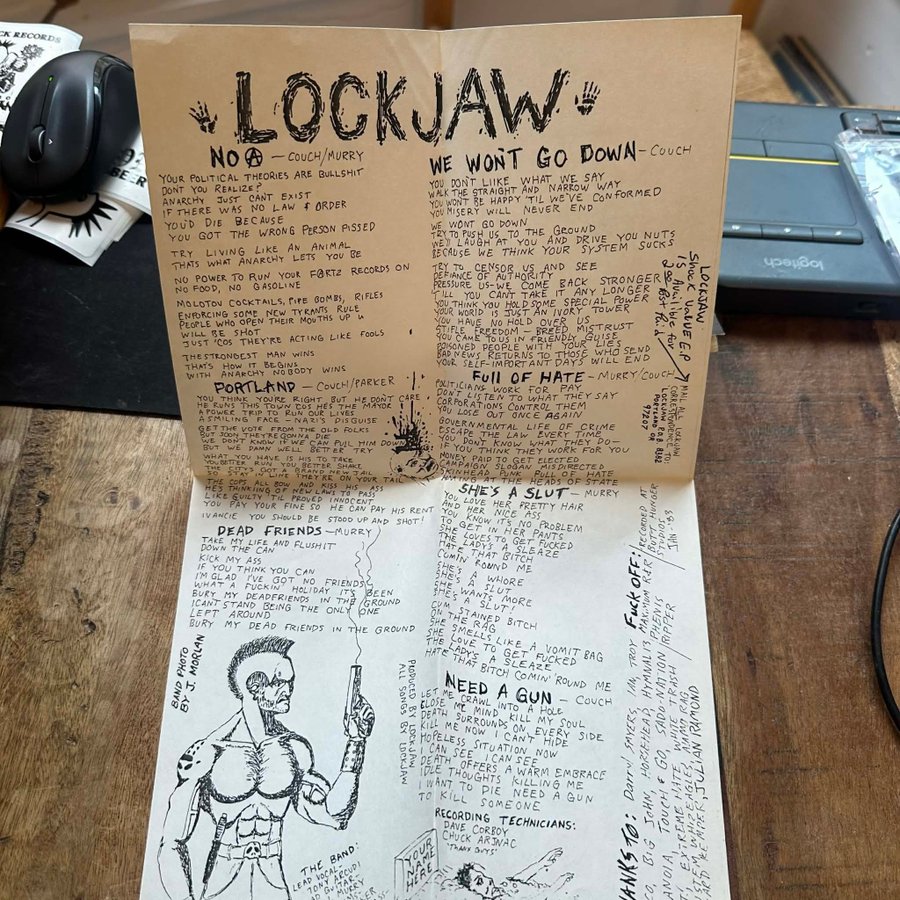 CK RECORDS
LOCKJAW
NO Ⓐ — COUCH/MURRY
YOUR POLITICAL THEORIES ARE BULLSHIT
DONT YOU REALIZE?
ANARCHY JUST CAN'T EXIST
IF THERE WAS NO LAW & ORDER
YOU'D DIE BECAUSE
YOU GOT THE WRONG PERSON PISSED
TRY LIVING LIKE AN ANIMAL
THATS WHAT ANARCHY LETS YOU BE
NO POWER TO RUN YOUR FØRTZ RECORDS ON
NO FOOD, NO GASOLINE
MOLOTOV COCKTAILS, PIPE BOMBS, RIFLES
ENFORCING SOME NEW TYRANTS RULE
PEOPLE WHO OPEN THEIR MOUTHS UP
WILL BE SHOT
JUST 'COS THEY'RE ACTING LIKE FOOLS
THE STRONGEST MAN WINS
THATS HOW IT BEGINS
WITH ANARCHY NOBODY WINS
PORTLAND — COUCH/PARKER
YOU THINK YOU'RE RIGHT BUT HE DON'T CARE
HE RUNS THIS TOWN COS HES THE MAYOR
A POWER TRIP TO RUN OUR LIVES
A SMILING FACE - NAZI'S DISGUISE
GET THE VOTE FROM THE OLD FOLKS
BUT SOON THEY'RE GONNA DIE
BUT DON'T KNOW IF WE CAN PULL HIM DOWN
BUT WE DAMN WELL BETTER TRY
WHAT YOU HAVE IS HIS TO TAKE
YOU BETTER RUN YOU BETTER SHAKE
THE CITY'S GOT A BRAND NEW JAIL
THEY'RE ON YOUR TAIL
THE COPS ALL BOW AND KISS HIS ASS
HE'S THINKING OF NEW LAWS TO PASS
LIKE GUILTY TIL PROVED INNOCENT
YOU PAY YOUR FINE SO HE CAN PAY HIS RENT
IVANCIE YOU SHOULD BE STOOD UP AND SHOT!
DEAD FRIENDS — MURRY
TAKE MY LIFE AND FLUSH IT
DOWN THE CAN
KICK MY ASS
IF YOU THINK YOU CAN
I'M GLAD I'VE GOT NO FRIENDS
WHAT A FUCKIN' HOLIDAY IT'S BEEN
BURY MY DEADFRIENDS IN THE GROUND
I CAN'T STAND BEING THE ONLY ONE
LEFT AROUND
BURY MY DEAD FRIENDS IN THE GROUND
BAND PHOTO
BY J. MORLAN
PRODUCED BY LOCKJAW
ALL SONGS BY LOCKJAW
THE BAND:
LEAD VOCAL-
TONY ARCUDI
WE WON'T GO DOWN — COUCH
YOU DON'T LIIKE WHAT WE SAY
WALK THE STRAIGHT AND NARROW WAY
YOU WON'T BE HAPPY 'TIL WE'VE CONFORMED
YOU MISERY WILL NEVER END
WE WONT GO DOWN
TRY TO PUSH US TO THE GROUND
WE'LL LAUGH AT YOU AND DRIVE YOU NUTS
BECAUSE WE THINK YOUR SYSTEM SUCKS
TRY TO CENSOR US AND SEE
DEFIANCE OF AUTHORITY
PRESSURE US-WE COME BACK STRONGER
TILL YOU CAN'T TAKE IT ANY LONGER
YOU THINK YOU HOLD SOME SPECIAL POWER
YOUR WORLD IS JUST AN IVORY TOWER
YOU HAVE NO HOLD OVER US
STIFLE FREEDOM - BREED MISTRUST
YOU CAME TO US IN FRIENDLY GUISE
POISONED PEOPLE WITH YOUR LIES
BAD NEWS RETURNS TO THOSE WHO SEND
YOUR SELF-IMPORTANT DAYS WILL END
FULL OF HATE — MURRY/COUCH
POLITICIANS WORK FOR PAY
DON'T LISTEN TO WHAT THEY SAY
CORPORATIONS CONTROL THEM
YOU LOSE OUT ONCE AGAIN
GOVERNMENTAL LIFE OF CRIME
ESCAPE THE LAW EVERY TIME
YOU DON'T KNOW WHAT THEY DO—
IF YOU THINK THEY WORK FOR YOU
MONEY PAID TO GET ELECTED
CAMPAIGN SLOGAN MISDIRECTED
SKINHEAD PUNK FULL OF HATE
AT THE HEADS OF STATE
SHE'S A SLUT — MURRY
YOU LOVE HER PRETTY HAIR
AND HER NICE ASS
YOU KNOW IT'S NO PROBLEM
TO GET IN HER PANTS
SHE LOVES TO GET FUCKED
THE LADY'S A SLEAZE
HATE THAT BITCH
COMIN' ROUND ME
SHE'S A WHORE
SHE'S A SLUT
SHE WANTS MORE
SHE'S A SLUT!
CUM STAINED BITCH
ON THE RAG
SHE SMELLS LIKE A VOMIT BAG
LOVE TO GET FUCKED
THE LADY'S A SLEAZE
HATE THAT BITCH COMIN' ROUND ME
NEED A GUN — COUCH
LET ME CRAWL INTO A HOLE
CLOSE ME MIND KILL MY SOUL
DEATH SURROUNDS ON EVERY SIDE
KILL ME NOW I CAN'T HIDE
HOPELESS SITUATION NOW
I CAN SEE I CAN SEE
DEATH OFFERS A WARM EMBRACE
IDLE THOUGHTS KILLING ME
I WANT TO DIE NEED A GUN
TO KILL SOMEONE
RECORDING TECHNICIANS:
DAVE CORBOY
CHUCK ARJNAC
"THANX GUYS"
YOUR
NAME
HERE
LOCKJAW
SHOCK VALUE E.P
IS AVAILIBLE FOR
MAIL ALL LOCKJAW
CORRESPONDENCE TO:
LOCKJAW
PORTLAND OR
97207
RECORDED AT
BUTT HUNGER
STUDIOS
JAN '83
FUCK OFF:
logitech